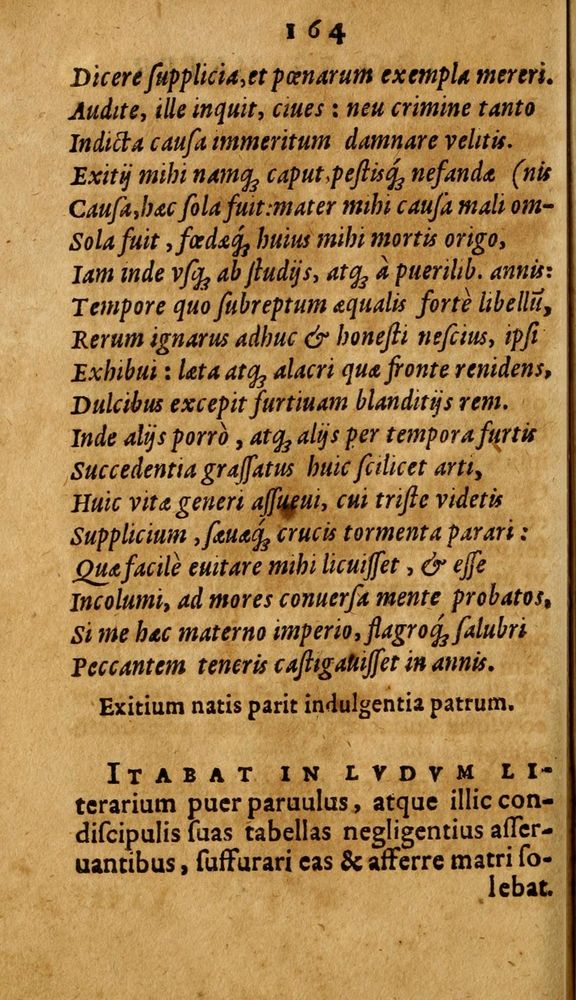 164
Dicere ſupplicia, et pœnarum exempla mereri.
Audite, ille inquit, ciues : neu crimine tanto
Indicta cauſa immeritum damnare velitis.
Exitij mihi namq́ꝫ caput, peſtisq́ꝫ nefandæ (nis
Cauſa, hæc ſola fuit: mater mihi cauſa mali om-
Sola fuit, fœdæq́ꝫ huius mihi mortis origo,
Iam inde vſqꝫ ab ſtudijs, atqꝫ à puerilib. annis:
Tempore quo ſubreptum æqualis fortè libellū,
Rerum ignarus adhuc & honeſti neſcius, ipſi
Exhibui : læta atqꝫ alacri quæ fronte renidens,
Dulcibus excepit furtiuam blanditijs rem.
Inde alijs porrò, atqꝫ alijs per tempora furtis
Succedentia graſſatus huic ſcilicet arti,
Huic vitæ generi aſſueui, cui triſte videtis
Supplicium, ſæuæq́ꝫ crucis tormenta parari :
Quæ facilè euitare mihi licuiſſet, & eſſe
Incolumi, ad mores conuerſa mente probatos,
Si me hæc materno imperio, flagroq́ꝫ ſalubri
Peccantem teneris caſtigauiſſet in annis.
Exitium natis parit indulgentia patrum.
ITABAT IN LVDVM LI-
terarium puer paruulus, atque illic con-
diſcipulis ſuas tabellas negligentius aſſer-
uantibus, ſuffurari eas & afferre matri ſo-
lebat.